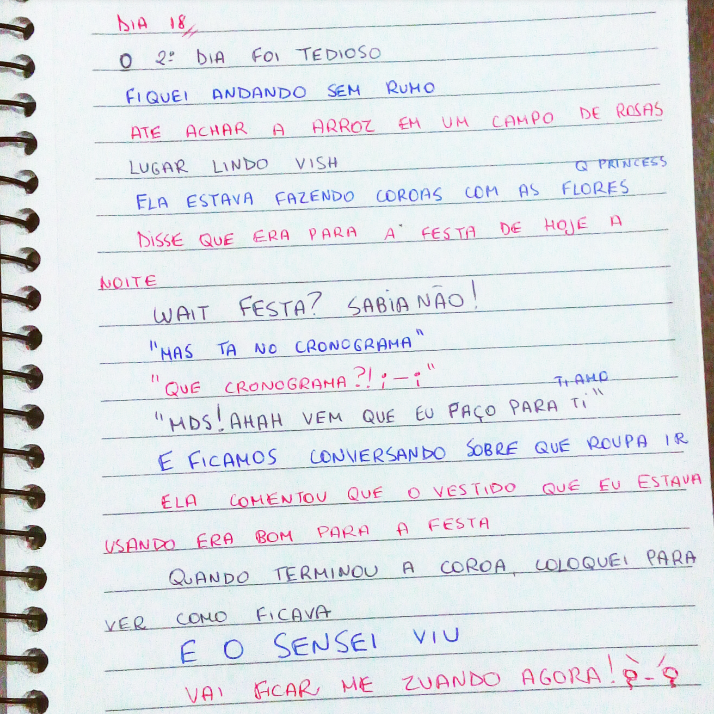 DIA 18
O 2º DIA FOI TEDIOSO
FIQUEI ANDANDO SEM RUMO
ATE ACHAR A ARROZ EM UM CAMPO DE ROSAS
LUGAR LINDO VISH
Q PRINCESS
ELA ESTAVA FAZENDO COROAS COM AS FLORES
DISSE QUE ERA PARA A FESTA DE HOJE A
NOITE
WAIT FESTA? SABIA NÃO!
"MAS TA NO CRONOGRAMA"
"QUE CRONOGRAMA?! ;-;"
TI AMO
"MDS! AHAH VEM QUE EU FAÇO PARA TI"
E FICAMOS CONVERSANDO SOBRE QUE ROUPA IR
ELA COMENTOU QUE O VESTIDO QUE EU ESTAVA
USANDO ERA BOM PARA A FESTA
QUANDO TERMINOU A COROA, COLOQUEI PARA
VER COMO FICAVA
E O SENSEI VIU
VAI FICAR ME ZUANDO AGORA!